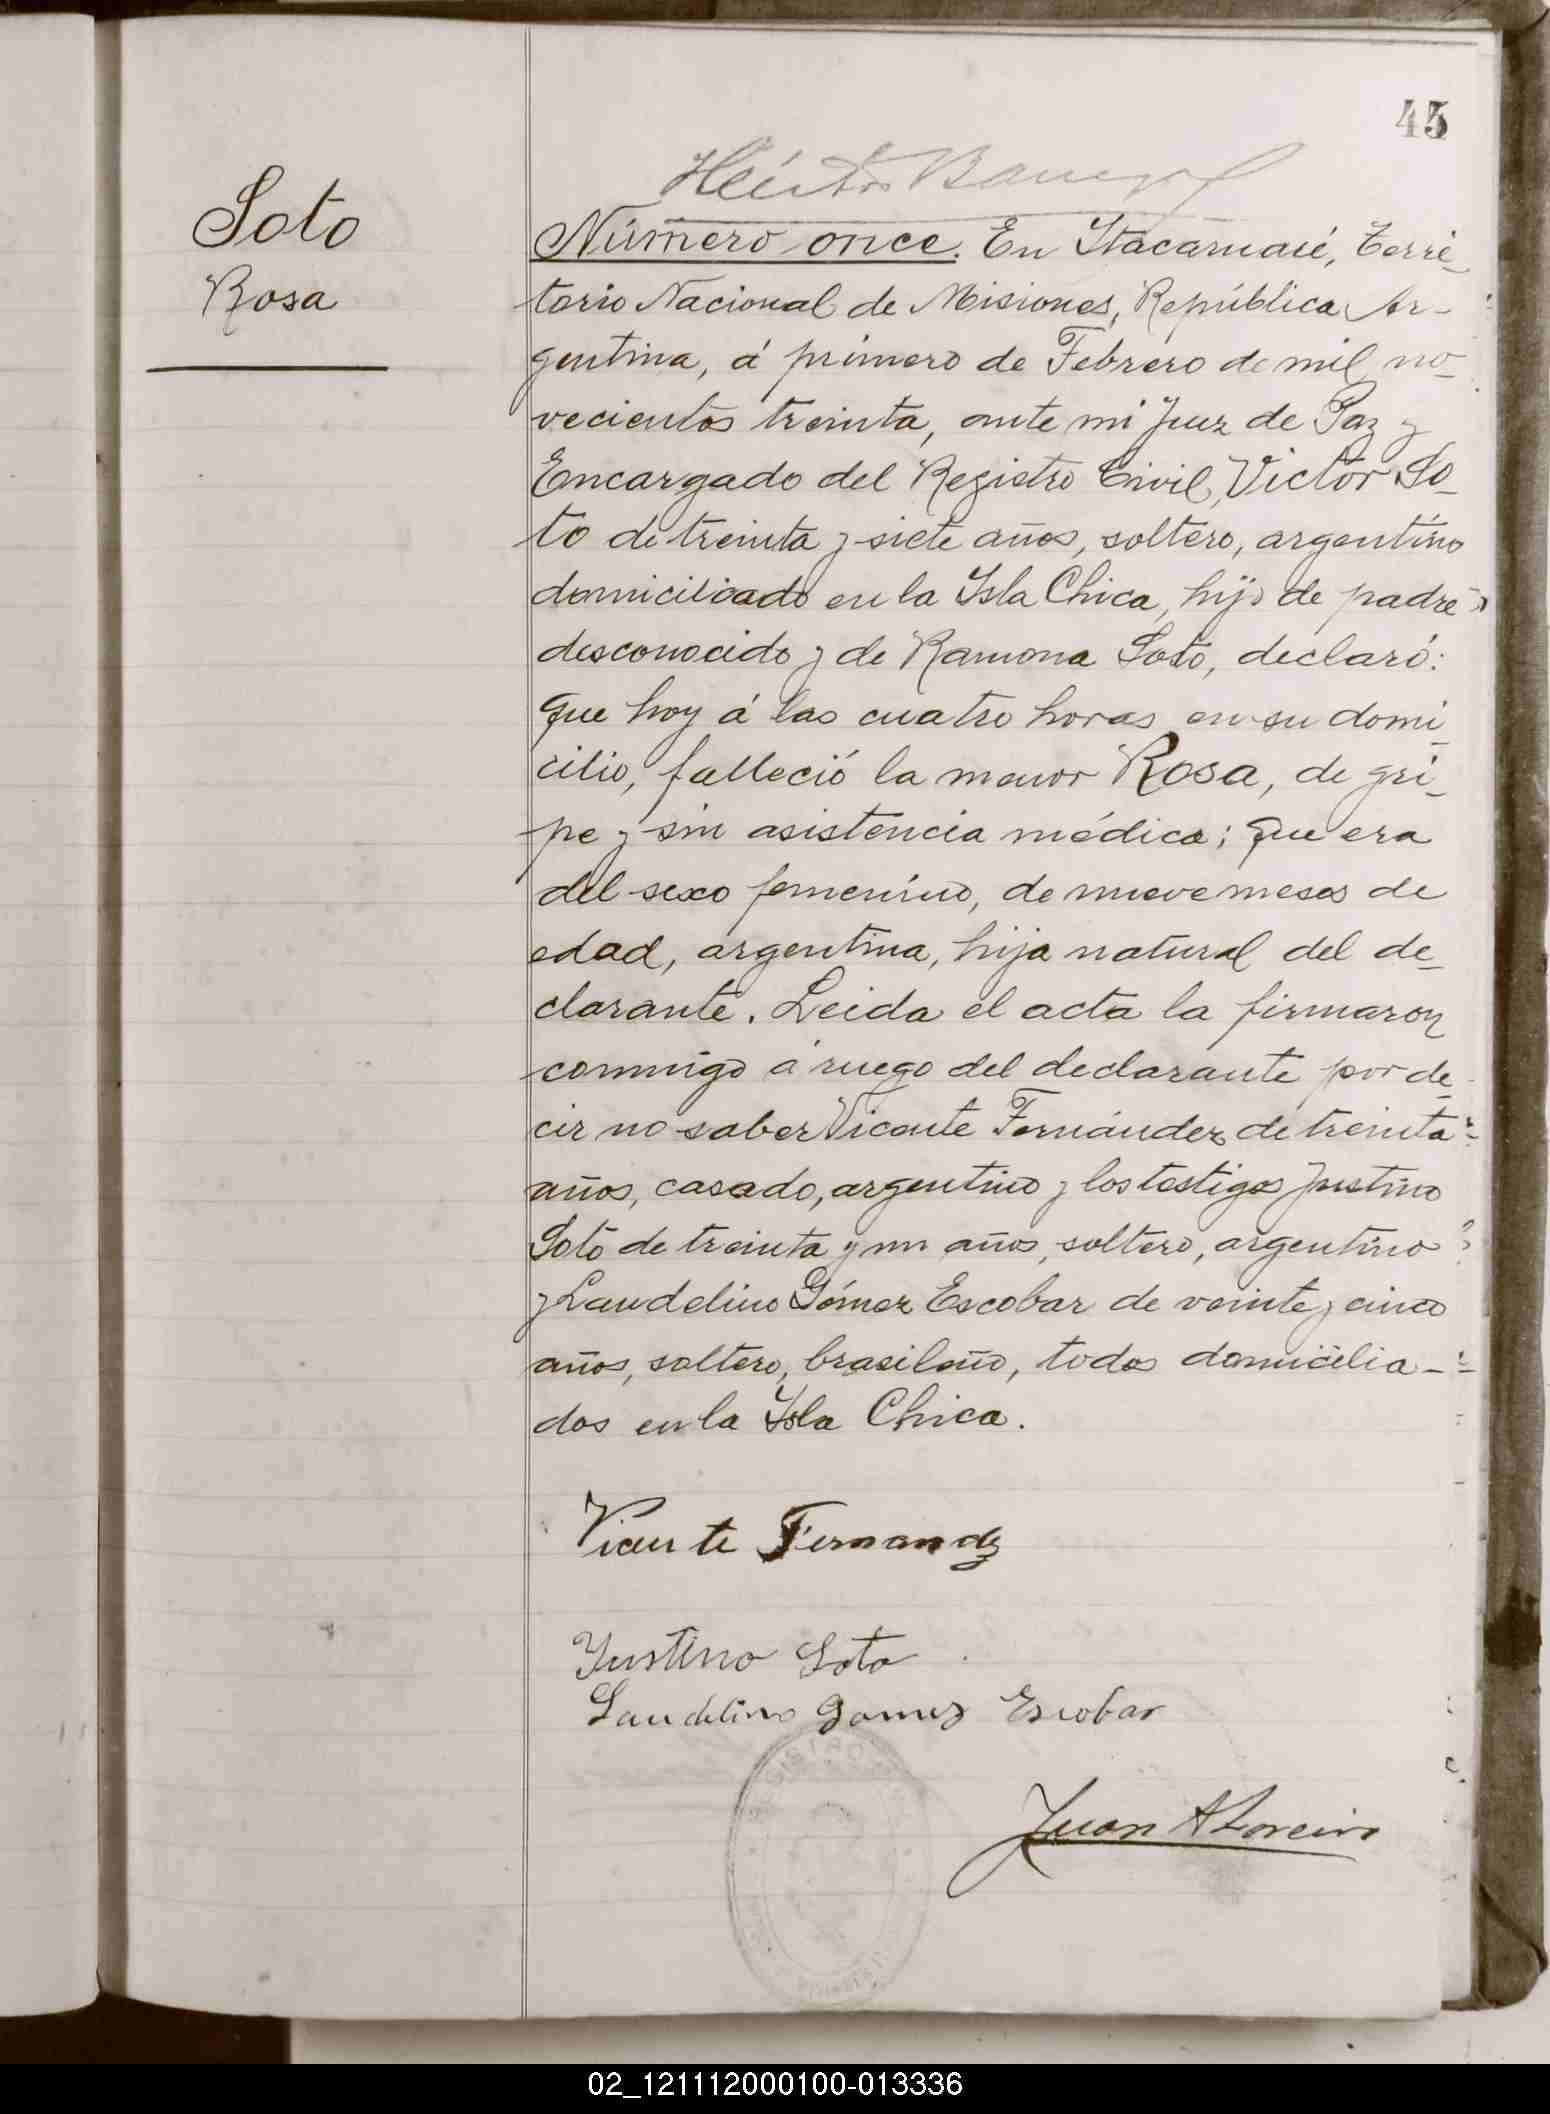 45
Héctor
Soto
Rosa
Número once. En Itacaruaré, Terri-
torio Nacional de Misiones, República Ar-
gentina, á primero de Febrero de mil no-
vecientos treinta, ante mi Juez de Paz y
Encargado del Registro Civil, Victor So-
to de treinta y siete años, soltero, argentino
domiciliado en la Isla Chica, hijo de padre
desconocido y de Ramona Soto, declaró:
que hoy á las cuatro horas en su domi-
cilio, falleció la menor Rosa, de gri-
pe y sin asistencia médica; que era
del sexo femenino, de nueve meses de
edad, argentina, hija natural del de-
clarante. Leida el acta la firmaron
conmigo á ruego del declarante por de-
cir no saber Vicente Fernández de treinta
años, casado, argentino y los testigos Justino
Soto de treinta y un años, soltero, argentino
y Laudelino Gómez Escobar de veinte y cinco
años, soltero, brasileño, todos domicilia-
dos en la Isla Chica.
Vicente Fernandz
Justino Soto
Laudelino Gomez Escobar
REGISTRO
Juan A
02_121112000100-013336